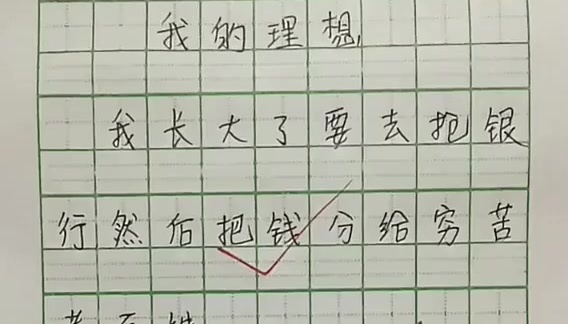 我的理想
我长大了要去抢银
行然后把钱分给穷苦